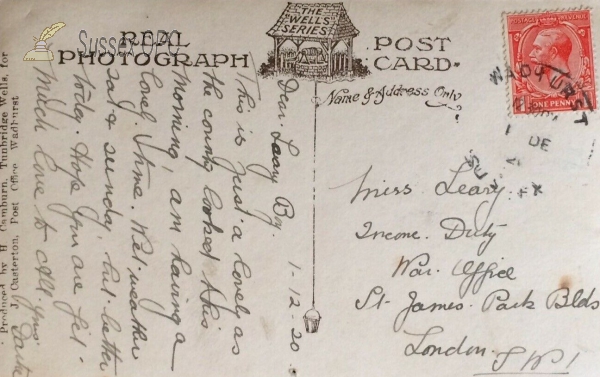 Sussex OPC
REAL
PHOTOGRAPH
THE
WELLS
SERIES
POST
CARD
Name & Address Only
POSTAGE REVENUE
ONE PENNY
WADHURST
DE
SUSSEX
Dear Leary Boy. 1-12-20.
This is just a lovely as
the county looked this
morning, am having a
lovely time. Wet weather
sat & sunday, but better
today. Hope you are fit.
Much love to All yrs.
Miss Leary.
Income Duty
War Office
St. James Park Blds
London.
S W 1
Produced by H. Camburn, Tunbridge Wells, for
J. Casterton, Post Office Wadhurst